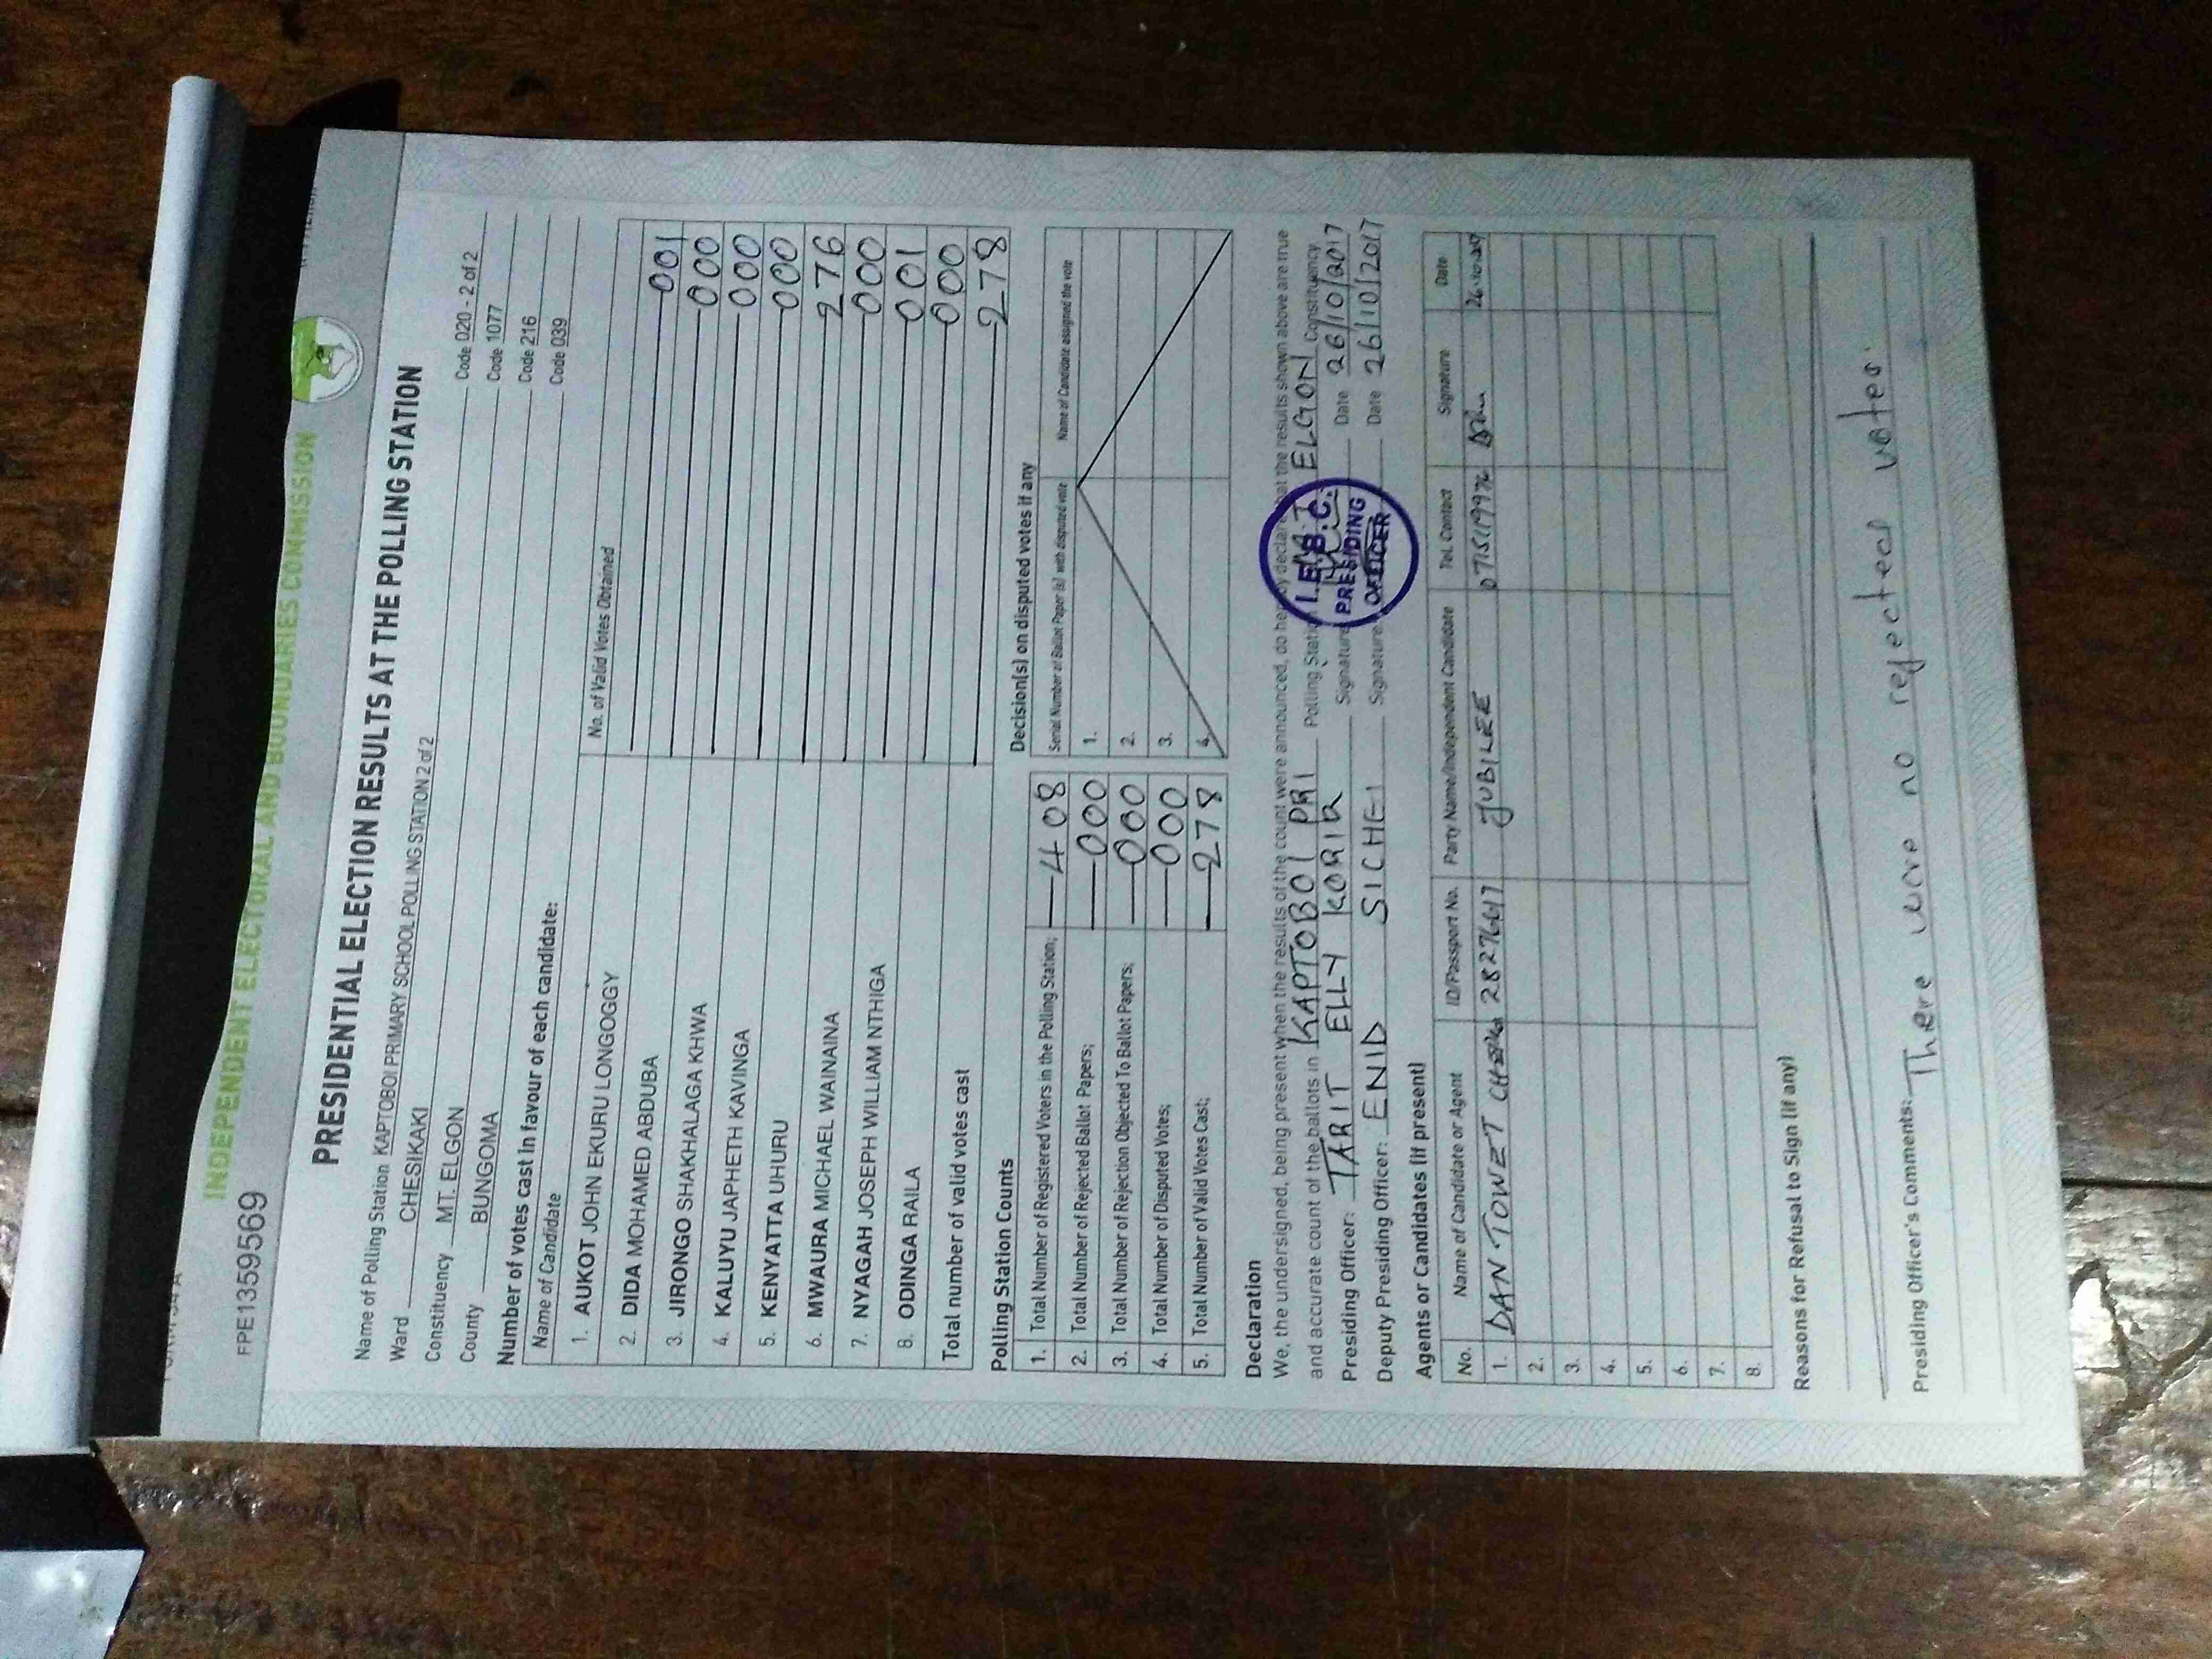 FPE1359569
INDEPENDENT ELECTORAL AND BOUNDARIES COMMISSION
PRESIDENTIAL ELECTION RESULTS AT THE POLLING STATION
Name of Polling Station KAPTOBOI PRIMARY SCHOOL POLLING STATION 2 of 2 Code 020 - 2 of 2
Ward CHESIKAKI Code 1077
Constituency MT. ELGON Code 216
County BUNGOMA Code 039
Number of votes cast in favour of each candidate:
Name of Candidate No. of Valid Votes Obtained
1. AUKOT JOHN EKURU LONGOGGY 001
2. DIDA MOHAMED ABDUBA 000
3. JIRONGO SHAKHALAGA KHWA 000
4. KALUYU JAPHETH KAVINGA 000
5. KENYATTA UHURU 276
6. MWAURA MICHAEL WAINAINA 000
7. NYAGAH JOSEPH WILLIAM NTHIGA 001
8. ODINGA RAILA 000
Total number of valid votes cast 278
Polling Station Counts
1. Total Number of Registered Voters in the Polling Station; 408
2. Total Number of Rejected Ballot Papers; 000
3. Total Number of Rejection Objected To Ballot Papers; 000
4. Total Number of Disputed Votes; 000
5. Total Number of Valid Votes Cast; 278
Decision(s) on disputed votes if any
Serial Number of Ballot Paper (s) with disputed vote Name of Candidate assigned the vote
1.
2.
3.
4.
Declaration
We, the undersigned, being present when the results of the count were announced, do hereby declare that the results shown above are true
and accurate count of the ballots in KAPTOBOI PRI Polling Station ELGON Constituency
Presiding Officer: TARIT ELLY KORIR Signature Date 26/10/2017
Deputy Presiding Officer: ENID SICHEI Signature Date 26/10/2017
I.E.B.C.
PRESIDING
OFFICER
Agents or Candidates (if present)
No. Name of Candidate or Agent ID/Passport No. Party Name/Independent Candidate Tel. Contact Signature Date
1. DAN TOWET 28276617 JUBILEE 26-10-2017
2.
3.
4.
5.
6.
7.
8.
Reasons for Refusal to Sign (if any)
Presiding Officer's Comments: There were no rejected votes.